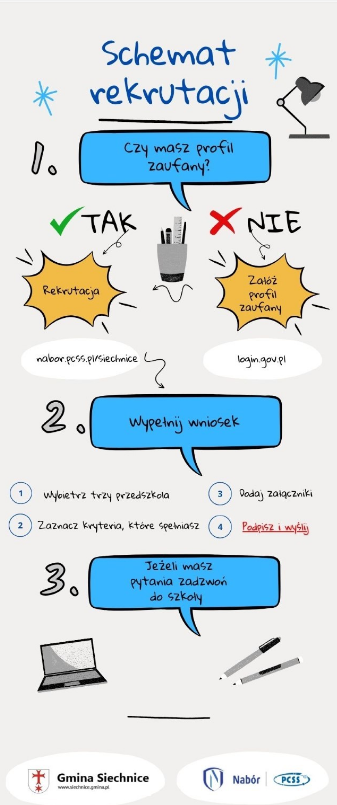 Schemat
rekrutacji
1.
Czy masz profil
zaufany?
TAK
NIE
Rekrutacja
Załóż
profil
zaufany
nabor.pcss.pl/siechnice
login.gov.pl
2.
Wypełnij wniosek
1 Wybierz trzy przedszkola
2 Zaznacz kryteria, które spełniasz
3 Dodaj załączniki
4 Podpisz i wyślij
3.
Jeżeli masz
pytania zadzwoń
do szkoły
Gmina Siechnice
www.siechnice.gmina.pl
Nabór
PCSS